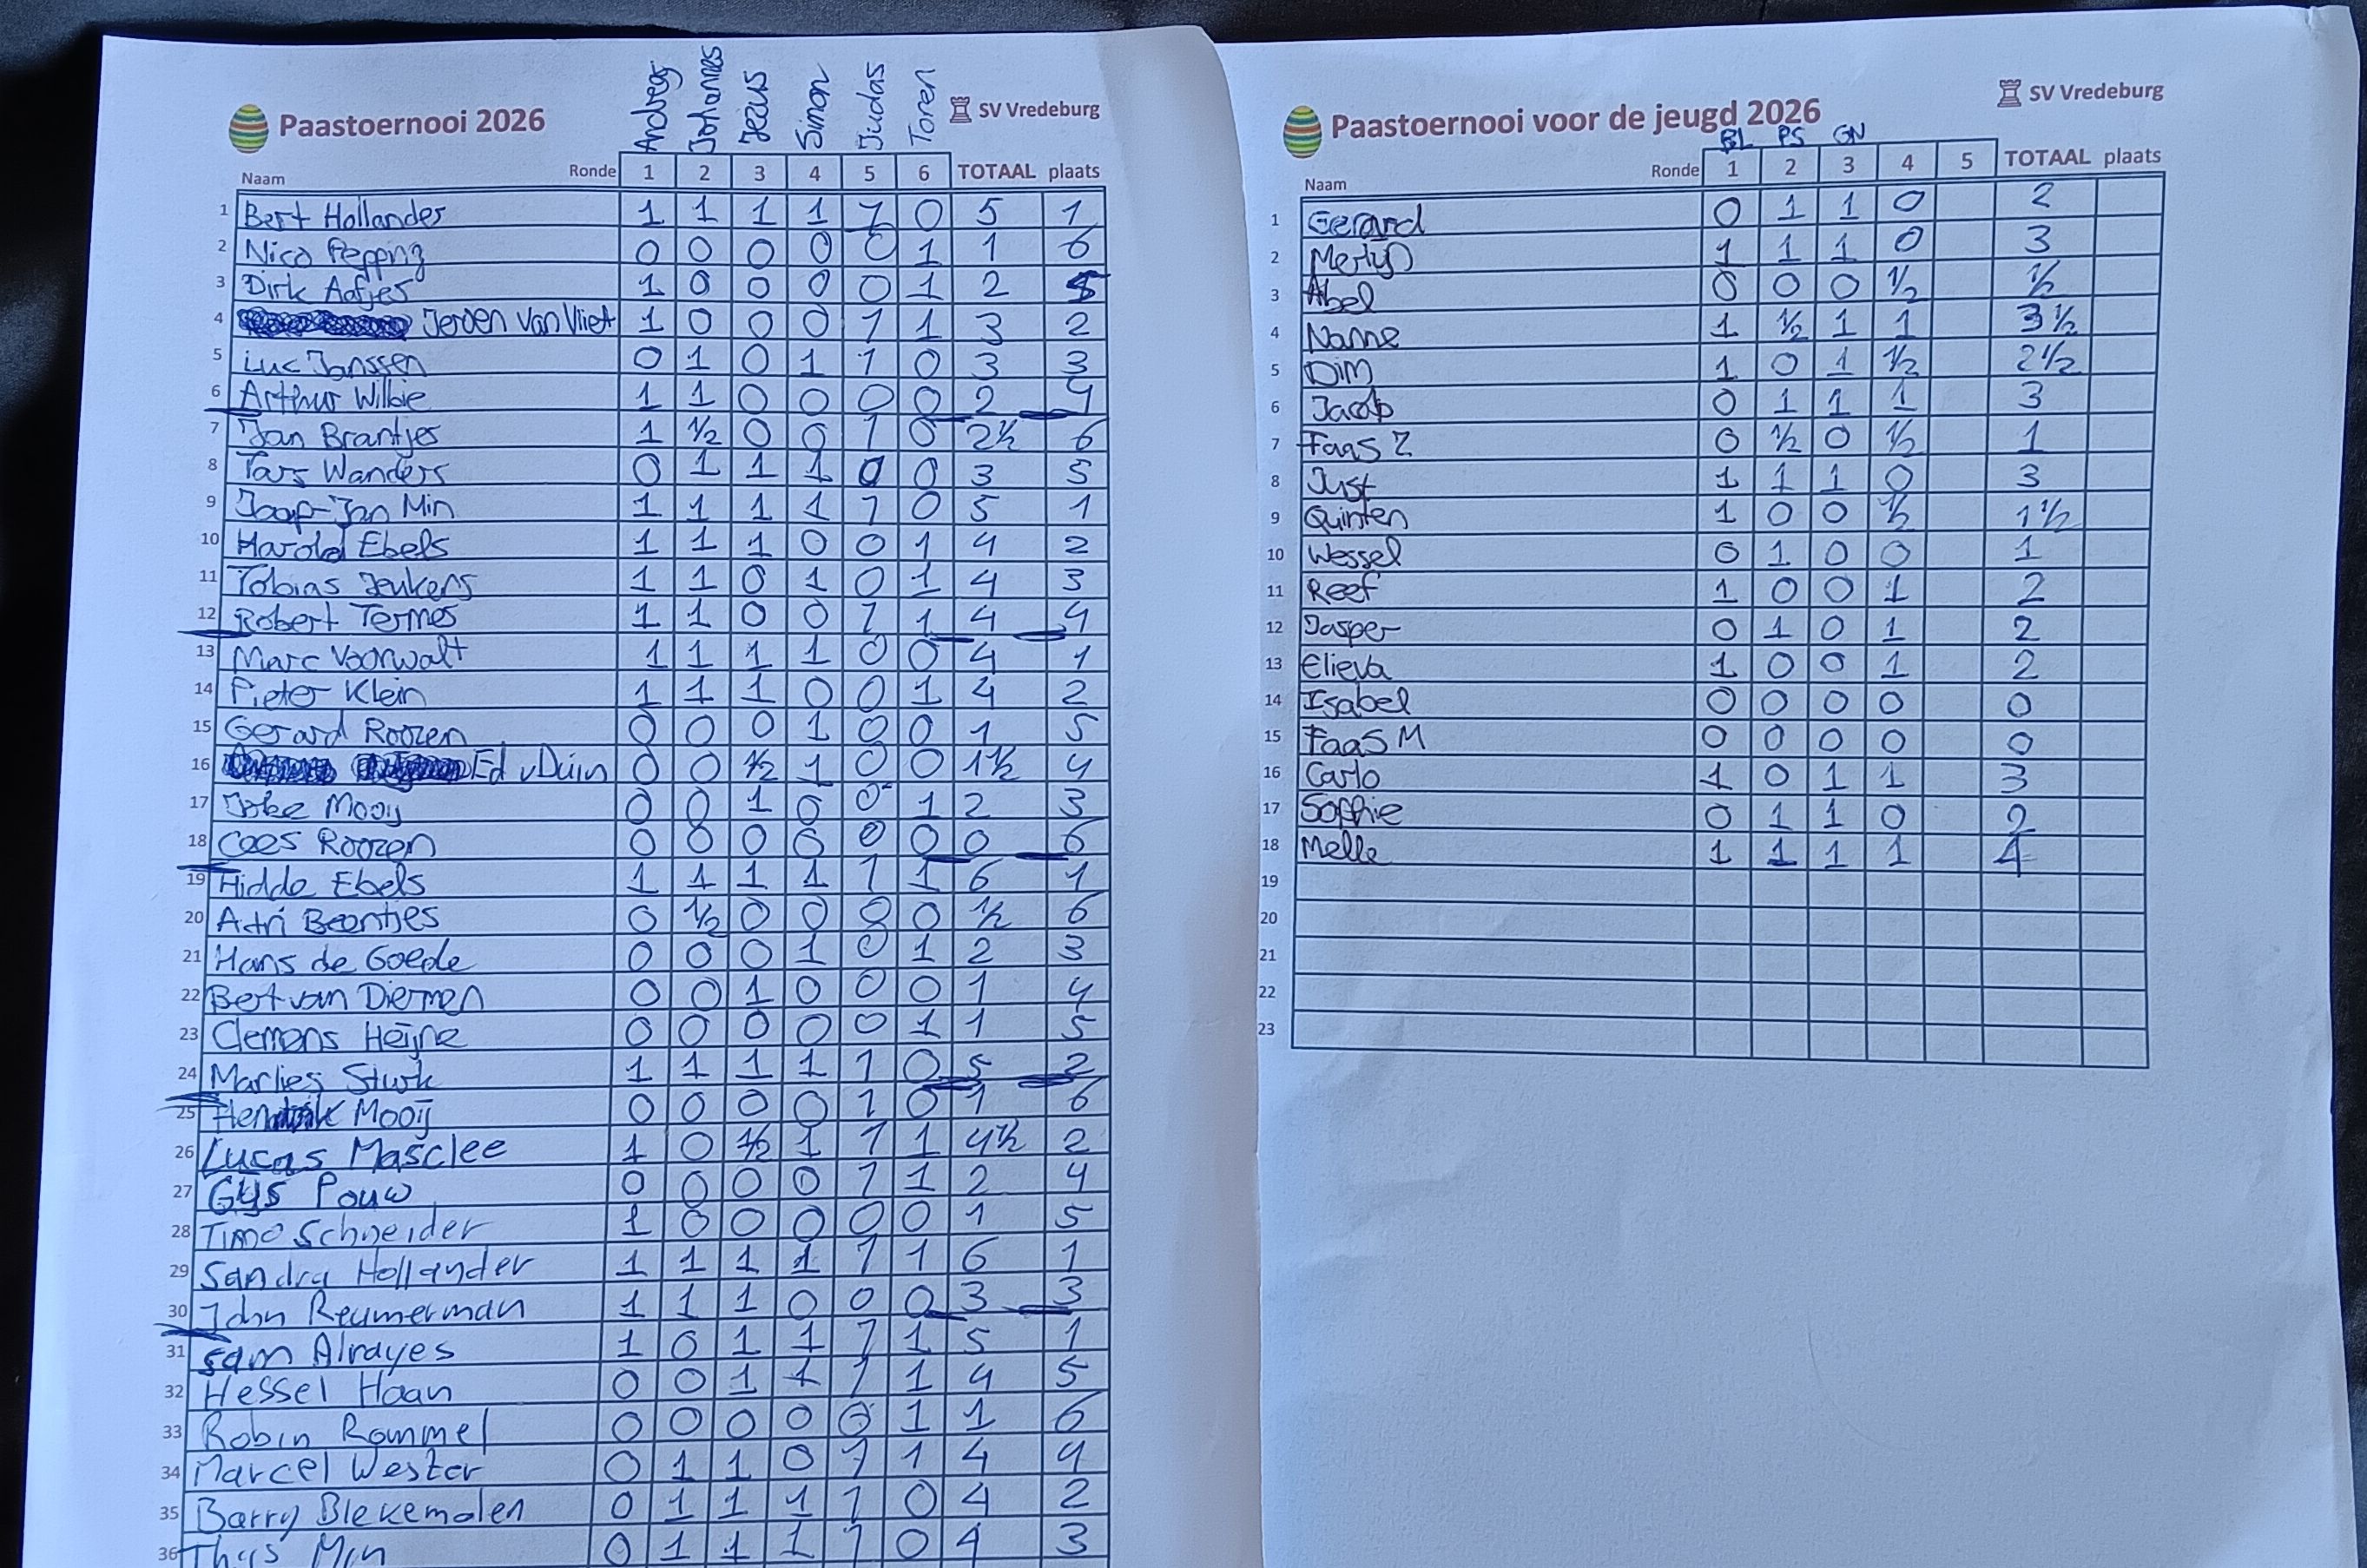 Andreas Johannes Jezus Simon Judas Toren
Paastoernooi 2026 SV Vredeburg
Naam Ronde 1 2 3 4 5 6 TOTAAL plaats
1 Bert Hollander 1 1 1 1 1 0 5 1
2 Nico Pepping 0 0 0 0 0 1 1 6
3 Dirk Aafjes 1 0 0 0 0 1 2 5
4 Jeroen van Vliet 1 0 0 0 1 1 3 2
5 Luc Janssen 0 1 0 1 1 0 3 3
6 Arthur Wilbie 1 1 0 0 0 0 2 4
7 Jan Brantjes 1 ½ 0 0 1 0 2½ 6
8 Tars Wanders 0 1 1 1 0 0 3 5
9 Jaap-Jan Min 1 1 1 1 1 0 5 1
10 Harold Ebels 1 1 1 0 0 1 4 2
11 Tobias Jeukens 1 1 0 1 0 1 4 3
12 Robert Termes 1 1 0 0 1 1 4 4
13 Marc Voorwalt 1 1 1 1 0 0 4 1
14 Pieter Klein 1 1 1 0 0 1 4 2
15 Gerard Roozen 0 0 0 1 0 0 1 5
16 Ed v Duin 0 0 ½ 1 0 0 1½ 4
17 Joke Mooij 0 0 1 0 0 1 2 3
18 Cees Roozen 0 0 0 0 0 0 0 6
19 Hidde Ebels 1 1 1 1 1 1 6 1
20 Adri Beentjes 0 ½ 0 0 0 0 ½ 6
21 Hans de Goede 0 0 0 1 0 1 2 3
22 Bert van Diermen 0 0 1 0 0 0 1 4
23 Clemens Heijne 0 0 0 0 0 1 1 5
24 Marlies Sturk 1 1 1 1 1 0 5 2
25 Mooij 0 0 0 0 1 0 1 6
26 Lucas Masclee 1 0 ½ 1 1 1 4½ 2
27 Gijs Pouw 0 0 0 0 1 1 2 4
28 Timo Schneider 1 0 0 0 0 0 1 5
29 Sandra Hollander 1 1 1 1 1 1 6 1
30 John Reumerman 1 1 1 0 0 0 3 3
31 Sam Alrayes 1 0 1 1 1 1 5 1
32 Hessel Haan 0 0 1 1 1 1 4 5
33 Robin Rommel 0 0 0 0 0 1 1 6
34 Marcel Wester 0 1 1 0 1 1 4 4
35 Barry Blekemolen 0 1 1 1 1 0 4 2
36 Thijs Min 0 1 1 1 1 0 4 3
Paastoernooi voor de jeugd 2026 SV Vredeburg
BL PS GN
Naam Ronde 1 2 3 4 5 TOTAAL plaats
1 Gerard 0 1 1 0 2
2 Merlijn 1 1 1 0 3
3 Abel 0 0 0 ½ ½
4 Nanne 1 ½ 1 1 3½
5 Dim 1 0 1 ½ 2½
6 Jacob 0 1 1 1 3
7 Faas Z 0 ½ 0 ½ 1
8 Just 1 1 1 0 3
9 Quinten 1 0 0 ½ 1½
10 Wessel 0 1 0 0 1
11 Reef 1 0 0 1 2
12 Jasper 0 1 0 1 2
13 Elieva 1 0 0 1 2
14 Isabel 0 0 0 0 0
15 Faas M 0 0 0 0 0
16 Carlo 1 0 1 1 3
17 Sophie 0 1 1 0 2
18 Melle 1 1 1 1 4
19
20
21
22
23